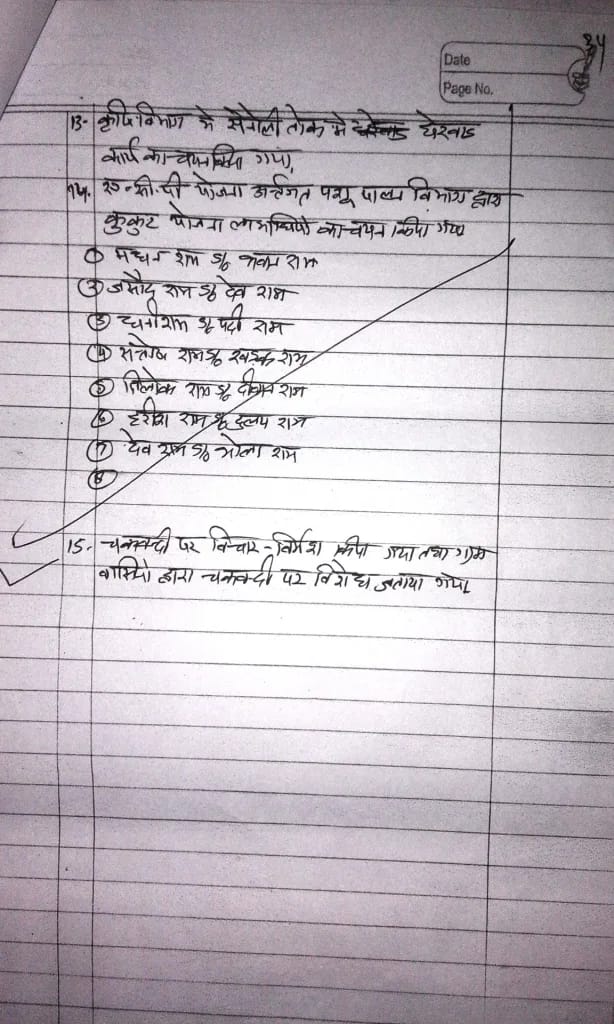 34
Date
Page No.
13- कृषि विभाग से सेनोली तोक मे घेरवाड घेरवाड
कार्य का चयन किया गया,
14. एस.सी.पी योजना अर्न्तगत पशु पालन विभाग द्वारा
कुकुट योजना लाभार्थियो का चयन किया गया
① राम S/o राम
② राम S/o देव राम
③ धनीराम S/o पदी राम
④ संतोष राम S/o खड़क राम
⑤ त्रिलोक राम S/o दीवान राम
⑥ हरीश राम S/o दलप राम
⑦ देव राम S/o भोला राम
⑧
15. चकबन्दी पर विचार-विर्मश किया गया तथा ग्राम
वासियो द्वारा चकबन्दी पर विरोध जताया गया